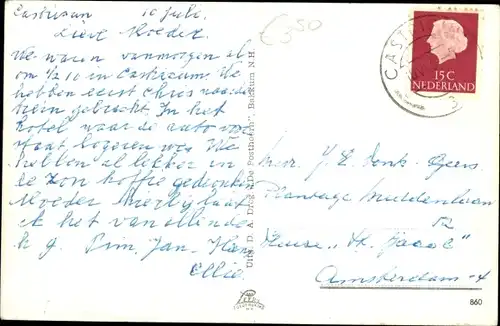 Castricum 10 Juli.
Lieve Moeder
We waren vanmorgen al
om 1/2 10 in Castricum. We
hebben eerst Chris naar de
trein gebracht. In het
hotel waar de auto voor
staat logeren we. We
hebben al lekker in
de zon koffie gedronken
Moeder hierbij laat
ik het van allinde
h g. Pim, Jan, Han
Ellie
€350
CAST
15 C
NEDERLAND
Uitg. D. A. Drog "De Posthoorn", Backum N.H.
Mevr. J. E. Donk-
Plantage Middenlaan
Huize "St. Jacob"
Amsterdam-C
860